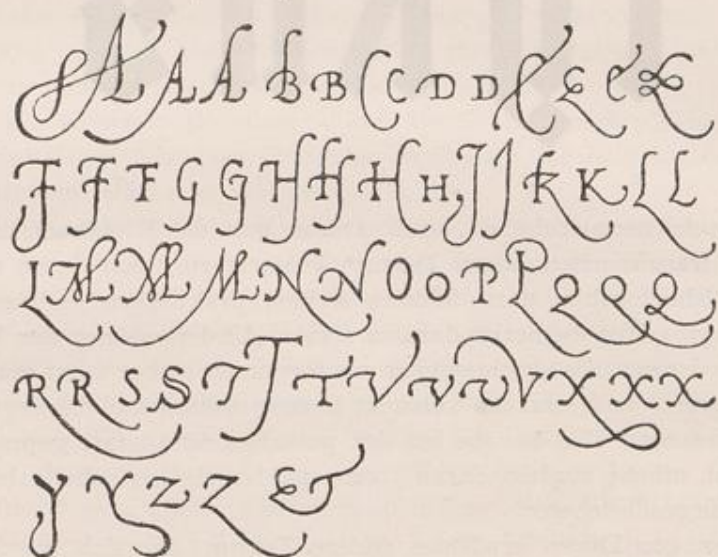 A A A B B C C D D E E E E
F F F G G H H H H J J K K L L
L M M M N N O O P P Q Q Q
R R S S T T T V V V V X X X
Y Y Z Z &